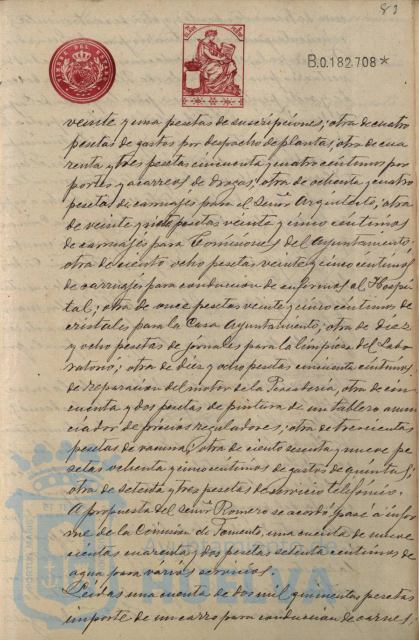 83
B.0.182.708*
veinte y una pesetas de suscripciones; otra de cuatro
pesetas de gastos por despacho de plantas, otra de cua
renta y tres pesetas cincuenta y cuatro céntimos por
portes y acarreos de drogas, otra de ochenta y cuatro
pesetas de carruajes para el Señor Arquitecto, otra
de veinte y siete pesetas veinte y cinco céntimos
de carruajes para Comisiones del Ayuntamiento
otra de ciento ocho pesetas veinte y cinco céntimos
de carruajes para conduccion de enfermos al Hospi
tal; otra de once pesetas veinte y cinco céntimos de
cristales para la Casa Ayuntamiento, otra de diez
y ocho pesetas de jornales para la limpieza del Labo
ratorio; otra de diez y ocho pesetas cincuenta céntimos
de reparacion del motor de la Panadería, otra de cin
cuenta y dos pesetas de pintura de un tablero anun
ciador de precios reguladores; otra de trescientas
pesetas de vacuna; otra de ciento sesenta y nueve pe
setas ochenta y cinco céntimos de gastos de quintas;
otra de setenta y tres pesetas de servicio telefónico.
A propuesta del Señor Romero se acordó pase á infor
me de la Comision de Fomento, una cuenta de nueve
cientas cuarenta y dos pesetas setenta céntimos de
agua para varios servicios.
Leidas una cuenta de dos mil quinientas pesetas
importe de un carro para conduccion de carnes
HUELVA